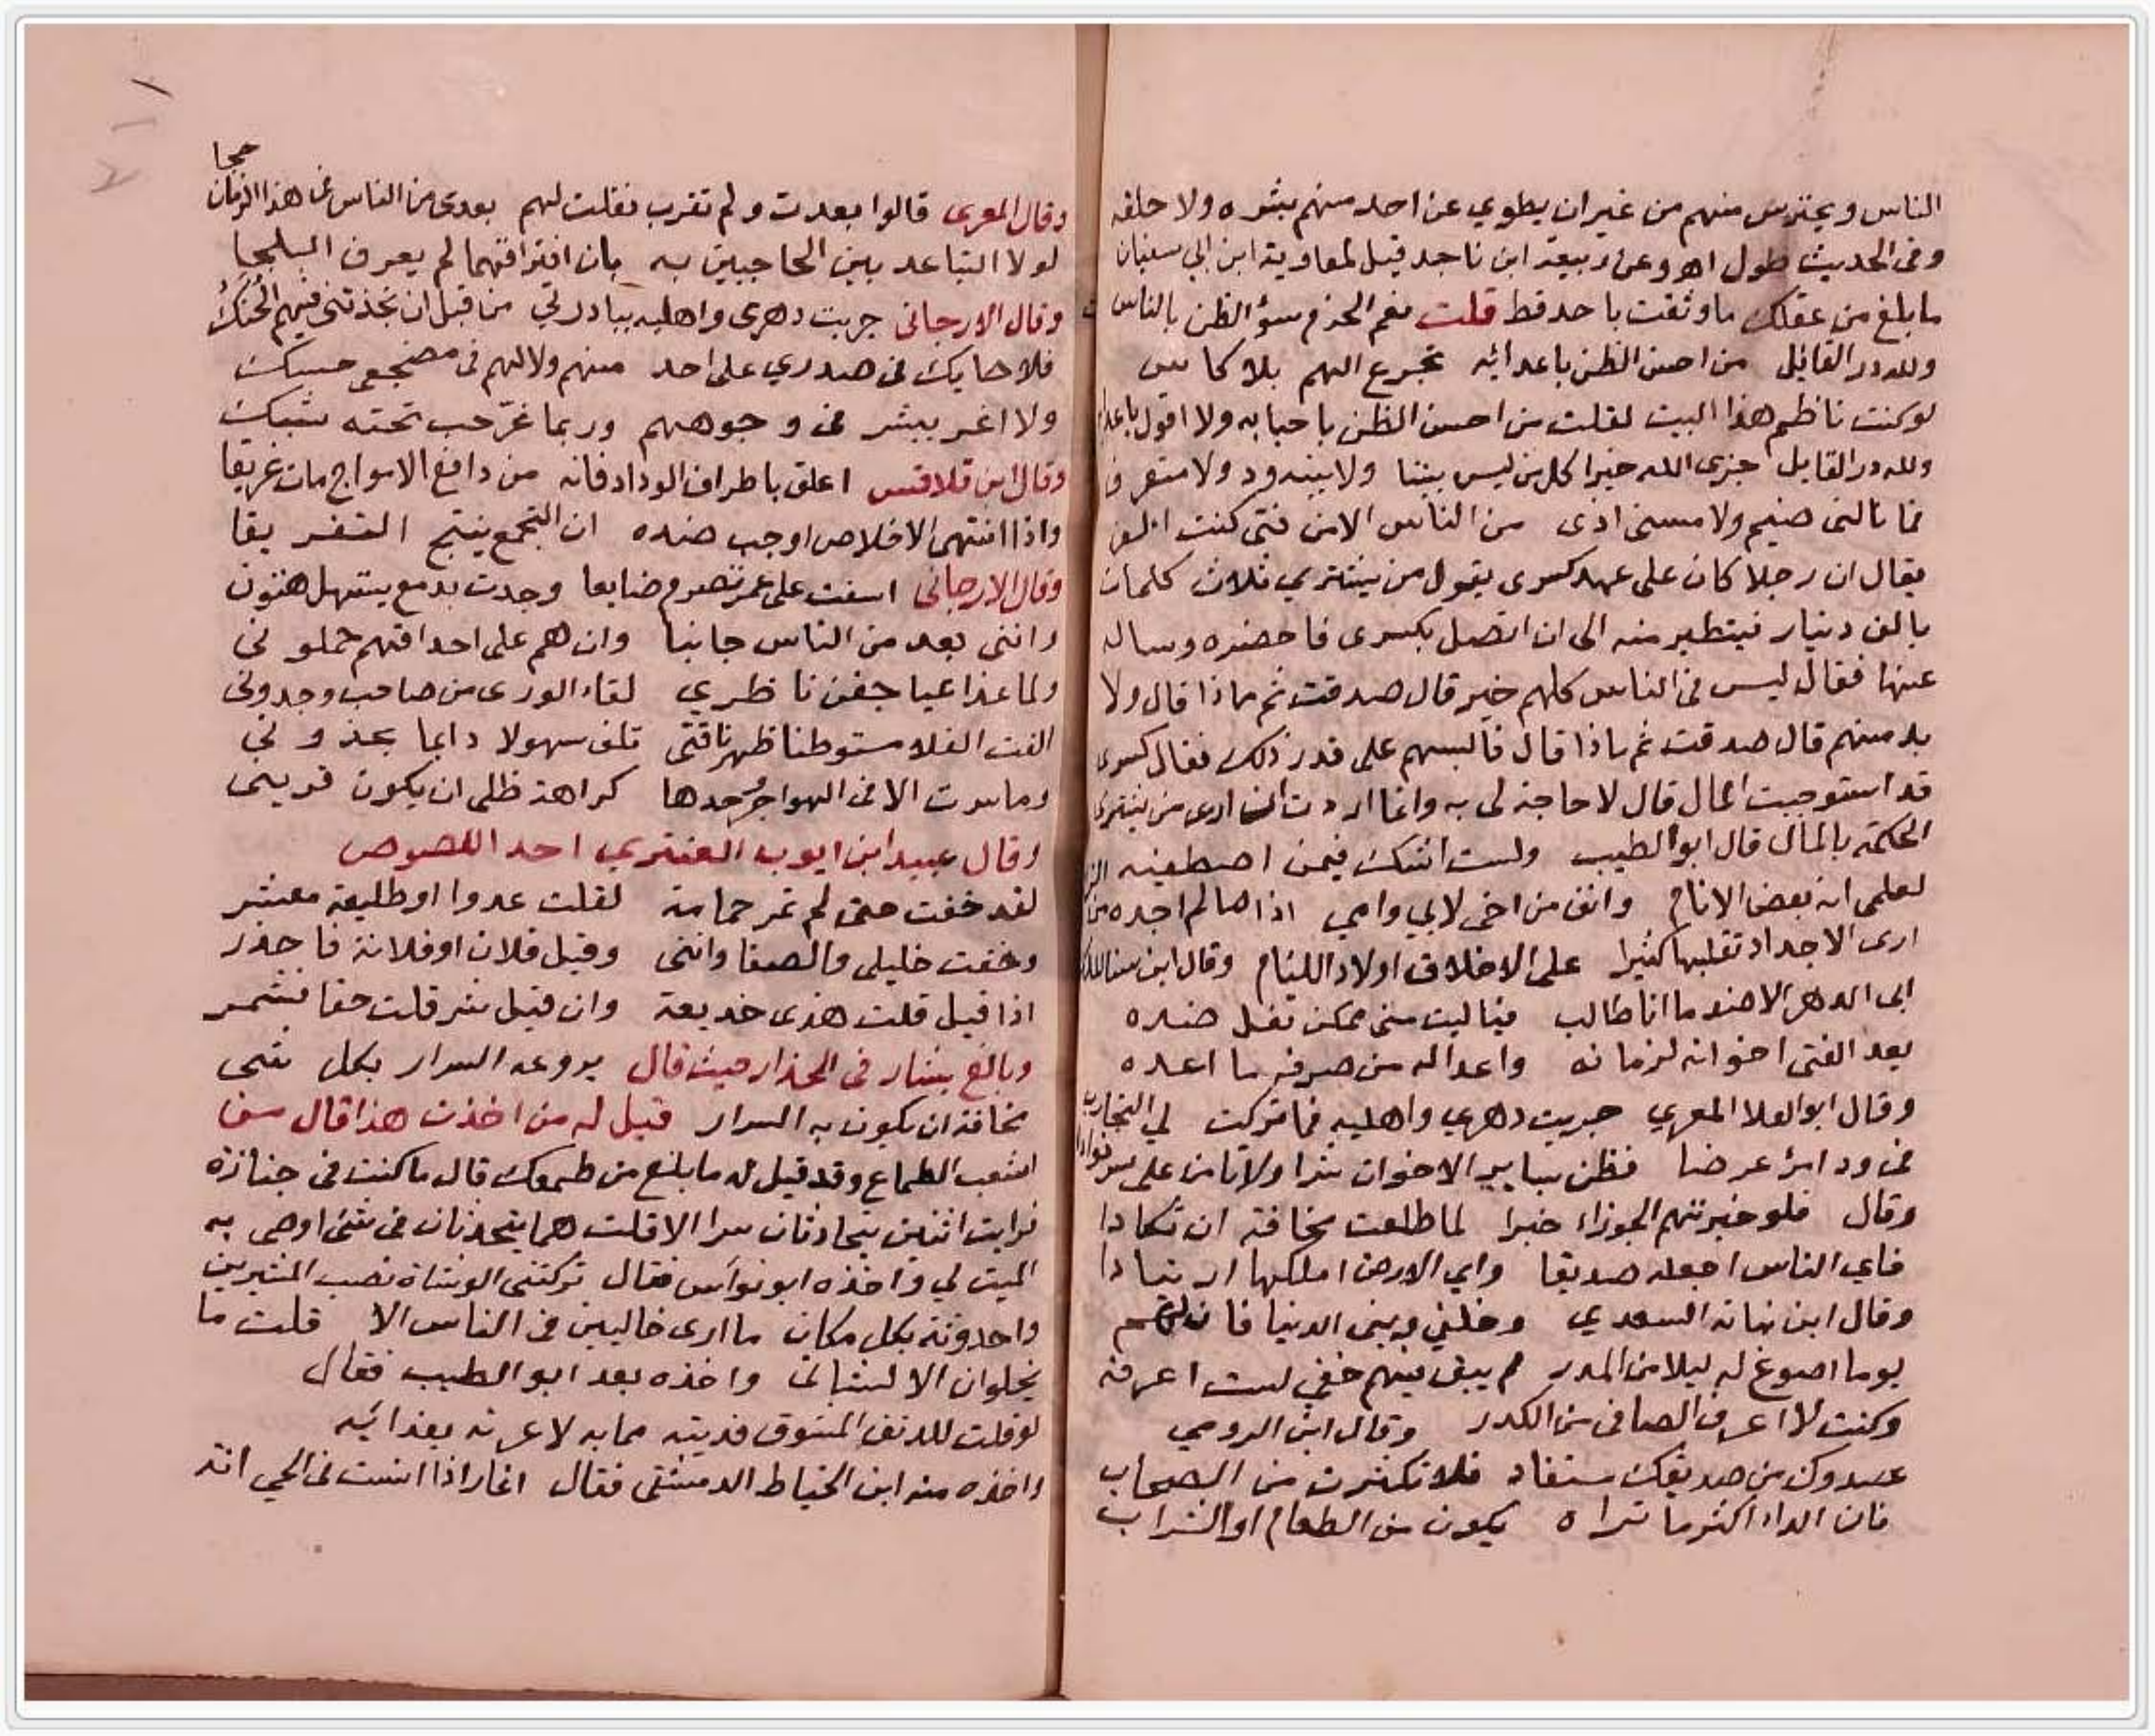 الناس ويحترس منهم من غير ان يطوي عن احد منهم بشره ولا خلقه
وفى الحديث طول اهـ وعن ربيعة ابن ناجد قيل لمعاوية ابن ابي سفيان
ما بلغ من عقلك ما وثقت باحد قط قلت نعم الحزم سؤ الظن بالناس
ولله در القائل من احسن الظن باعدائه تجرع الهم بلا كاس
لو كنت ناظم هذا البيت لقلت من احسن الظن باحبابه ولا اقول باعدائه
ولله در القايل جزى الله خيرا كل من ليس بيننا ولا بينه ود ولا متعرف
فما نالنى ضيم ولا مسنى اذى من الناس الا من فتى كنت اعرف
يقال ان رجلا كان على عهد كسرى يقول من يشتري ثلاث كلمات
بالف دينار فيتطير منه الى ان اتصل بكسرى فاحضره وساله
عنها فقال ليس فى الناس كلهم خير قال صدقت ثم ماذا قال ولا
بد منهم قال صدقت ثم ماذا قال فالبسهم على قدر ذلك فقال كسرى
قد استوجبت المال قال لا حاجة لى به وانما اردت ان ارى من يشترى
الحكمة بالمال قال ابو الطيب ولست اشك فيمن اصطفيه
لعلمى انه بعض الانام وانف من اخى لابي وامي اذا ما لم اجده من
ارى الاجداد تغلبها كثيرا على الاخلاق اولاد اللئام وقال ابن سنا الملك
ابى الدهر الا ضد ما انا طالب فيا ليت منى ممكن تفل ضده
يعد الفتى اخوانه لزمانه واعدا له من صرفه ما اعده
وقال ابو العلا المعري جربت دهري واهليه فما تركت لي التجارب
فى ود امرئ عرضا فظن بساير الاخوان شرا ولا تامن على سر فوادا
وقال فلو خبرتهم الجوزاء خبرا لما طلعت مخافة ان تكادا
فاي الناس اجعله صديقا واي الارض املكها ارتيادا
وقال ابن نباته السعدي وخلني وبنى الدنيا فان لهم
يوما اصوغ له ليلا من المدر لم يبق فيهم خفي لست اعرفه
وكنت لا اعرف الصافى من الكدر وقال ابن الرومي
عدوك من صديقك مستفاد فلا تكثرن من الصحاب
فان الداء اكثر ما تراه يكون من الطعام او الشراب
حجا
وقال المعرى قالوا بعدت ولم تقرب فقلت لهم بعدى من الناس فى هذا الزمان
لولا التباعد بين الحاجبين به بان افتراقهما لم يعرف البلجا
وقال الارجانى جربت دهرى واهليه ببادرتي من قبل ان تجذنى فيهم الحنك
فلا حايك فى صدري على احد منهم ولا لهم فى مضجعى حسك
ولا اغر ببشر فى وجوههم وربما غر حب تحته شبك
وقال ابن قلاقس اعلق باطراف الوداد فانه من دافع الامواج مات غريقا
واذا انتهى الاخلاص اوجب ضده ان التجمع ينتج التفريقا
وقال الارجانى اسفت على عمر تصرم ضايعا وجدت بدمع يستهل هتون
وانى بعد من الناس جانبا وان هم على احداقهم حملونى
ولما غدا عيا جفن ناظري لقاء الورى من صاحب وجدونى
الفت الفلا مستوطنا ظهر ناقتى تلف سهولا دايما بحزون
وما سرت الا فى الهواجر وحدها كراهة ظلى ان يكون قرينى
وقال عبيد ابن ايوب العنبري احد اللصوص
لقد خفت حتى لم تمر حمامة لقلت عدوا او طليعة معشر
وخفت خليلى والصفا واننى وقيل فلان او فلانة فاحذر
اذا قيل قلت هذى خديعة وان قيل شر قلت حقا فشمر
وبالغ بشار فى الحذار حيث قال يروعه السرار بكل شى
مخافة ان يكون به السرار قيل له من اخذت هذا قال من
اشعب الطماع وقد قيل له ما بلغ من طمعك قال ما كنت فى جنازة
فرايت اثنين يتحادثان سرا الا قلت هما يتحدثان فى شئ اوصى به
الميت لي واخذه ابو نواس فقال تركتنى الوشاة نصب المشيرين
واحدوثة بكل مكان ما ارى خاليين فى الناس الا قلت ما
يخلوان الا لشانى واخذه بعد ابو الطيب فقال
لو قلت للدنف المشوق فديته مما به لاغرته بفدائيه
واخذه منه ابن الخياط الدمشقى فقال اغار اذا انست فى الحي انة